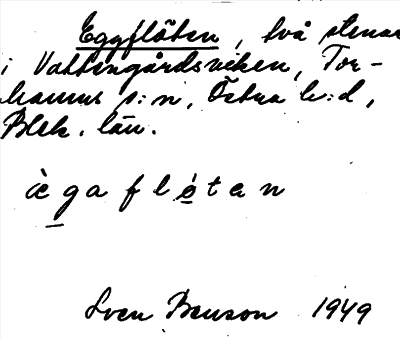 Eggflöten, två stenar
i Vattengårdsviken, Tor-
hamns s:n, Östra h:d,
Blek. län.
ègaflèten
Sven Benson 1949